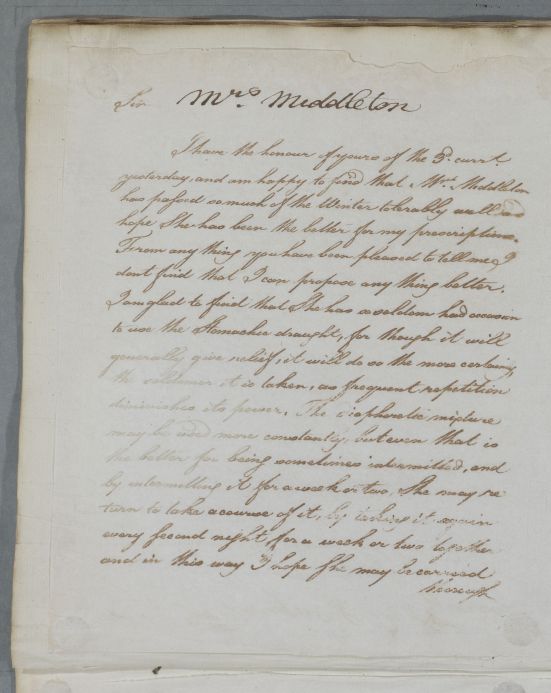 Sir Mrs. Middleton
I have the honour of yours of the 3d. currt.
yesterday, and am happy to find that Mrs. Middleton
has passed so much of the Winter tolerably well and
hope She has been the better for my prescriptions.
From any thing you have been pleased to tell me I
dont find that I can propose any thing better.
I am glad to find that She has seldom had occasion
to use the Stomachic draught, for though it will
generally give relief, it will do so the more certainly
the seldomer it is taken, as frequent repetition
diminishes its power. The diaphoretic mixture
may be used more constantly, but even that is
the better for being sometimes intermitted, and
by intermitting it for a week or two, She may re
turn to take a course of it, by taking it again
every second night, for a week or two together
and in this way I hope She may be carried
through